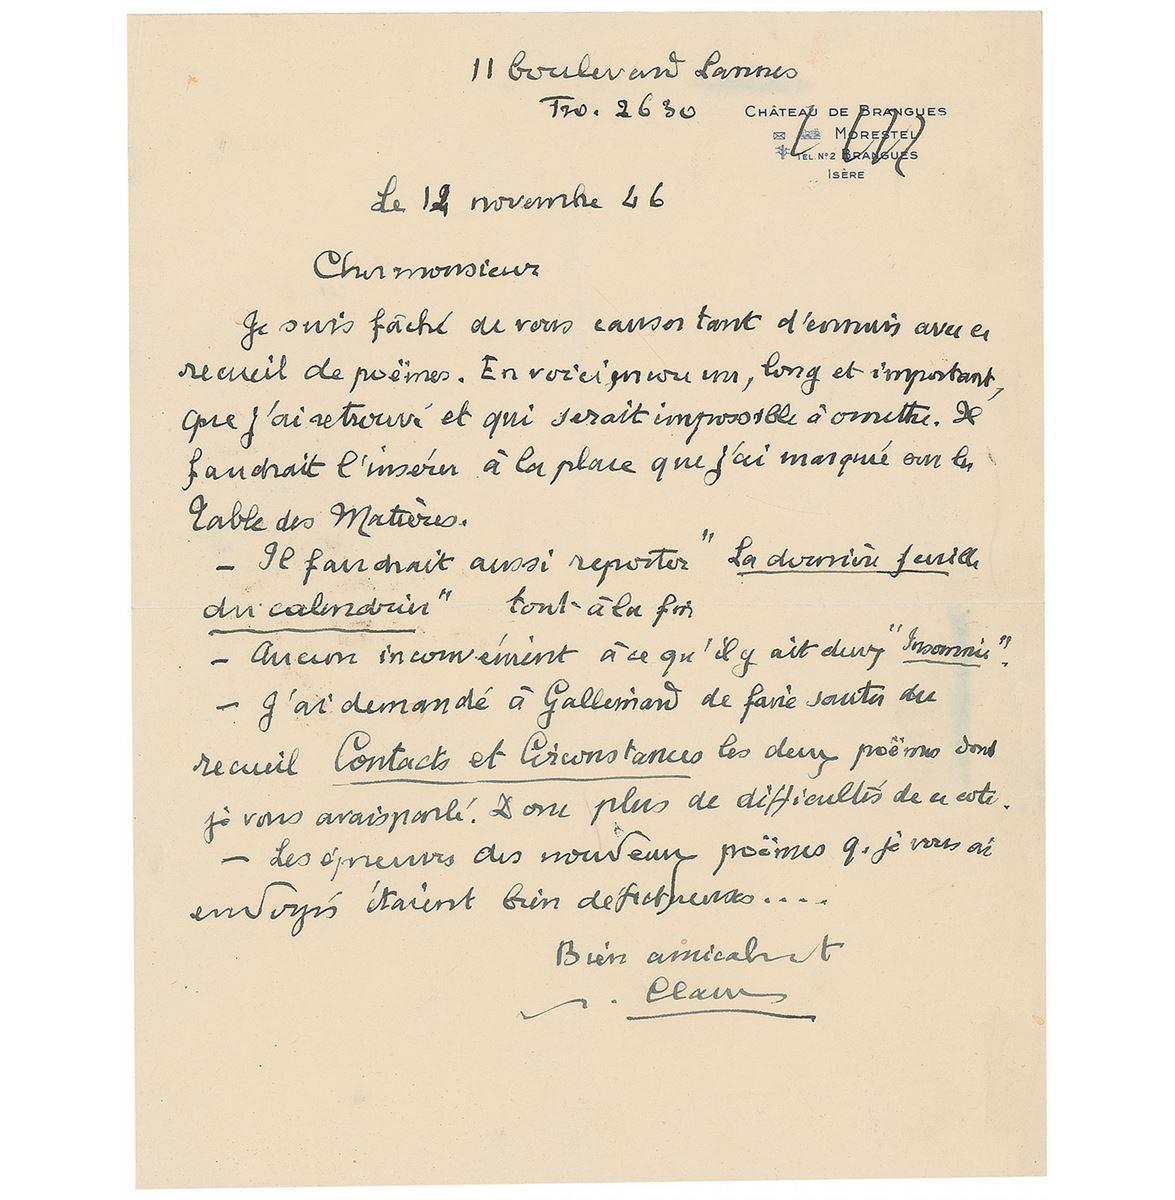 11 boulevard Lannes
Tro. 2630
CHÂTEAU DE BRANGUES
MORESTEL
TÉL. N°2 BRANGUES
ISÈRE
Le 12 novembre 46
Cher monsieur
Je suis fâché de vous causer tant d'ennuis avec ce
recueil de poëmes. En voici encore un, long et important,
que j'ai retrouvé et qui serait impossible à omettre. Il
faudrait l'insérer à la place que j'ai marquée sur la
Table des Matières.
— Il faudrait aussi reporter "La dernière feuille
du calendrier" tout-à la fin
— Aucun inconvénient à ce qu'il y ait deux "Insomnie".
— J'ai demandé à Gallimard de faire sauter du
recueil Contacts et Circonstances les deux poëmes dont
je vous avais parlé. Donc plus de difficultés de ce coté.
— Les épreuves des nouveaux poëmes q. je vous ai
envoyés étaient bien défectueuses....
Bien amicalement
p. Claudel